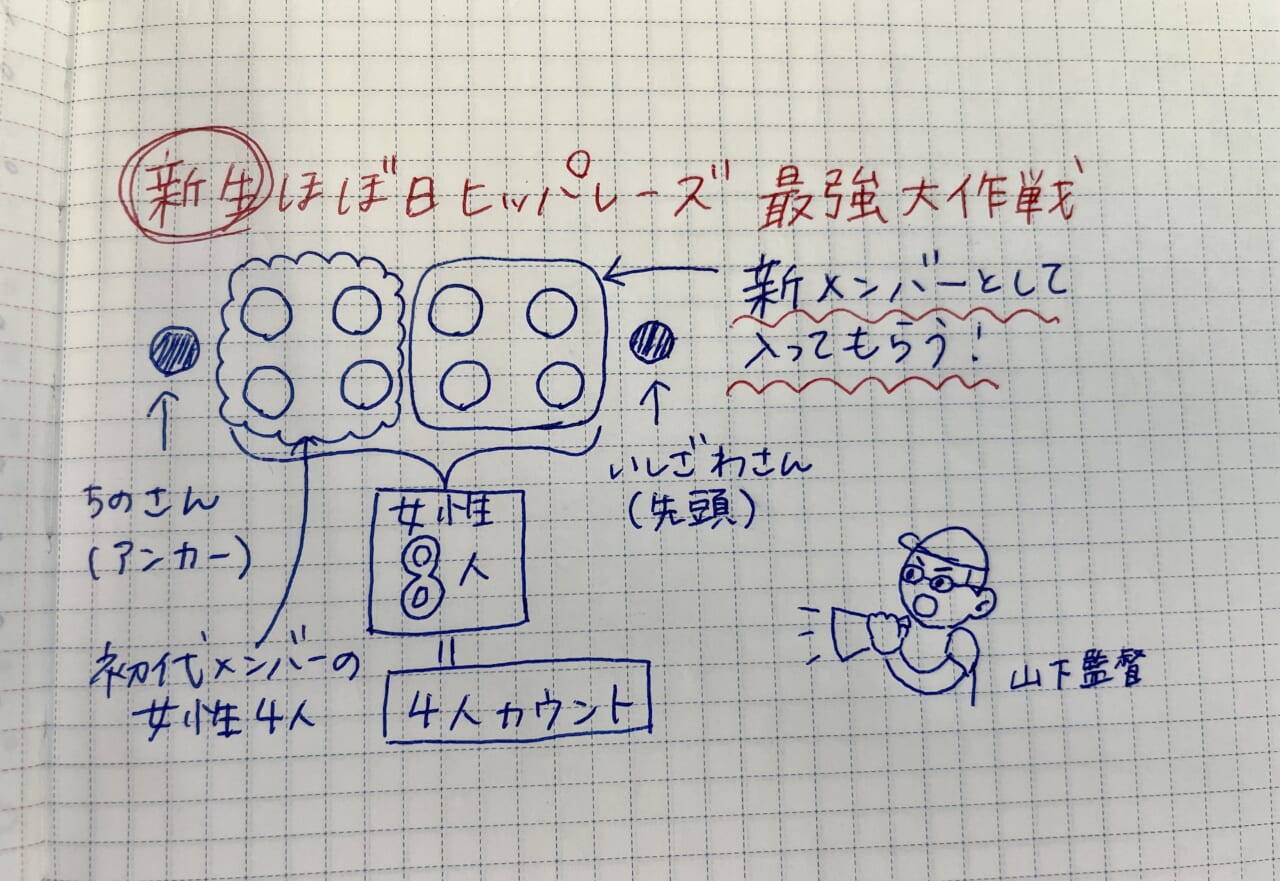 新生ほぼ日ヒッパレーズ 最強大作戦
新メンバーとして
入ってもらう!
ちのさん
(アンカー)
いしざわさん
(先頭)
女性
8人
初代メンバーの
女性4人
4人カウント
山下監督